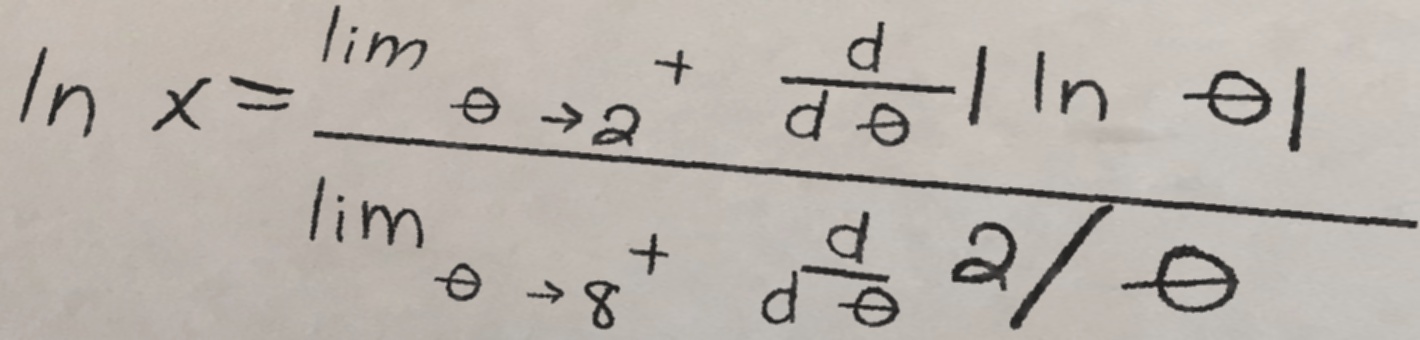 ln x = \frac{\lim_{\theta \to 2^+} \frac{d}{d\theta} |\ln \theta|}{\lim_{\theta \to 8^+} \frac{d}{d\theta} 2/\theta}